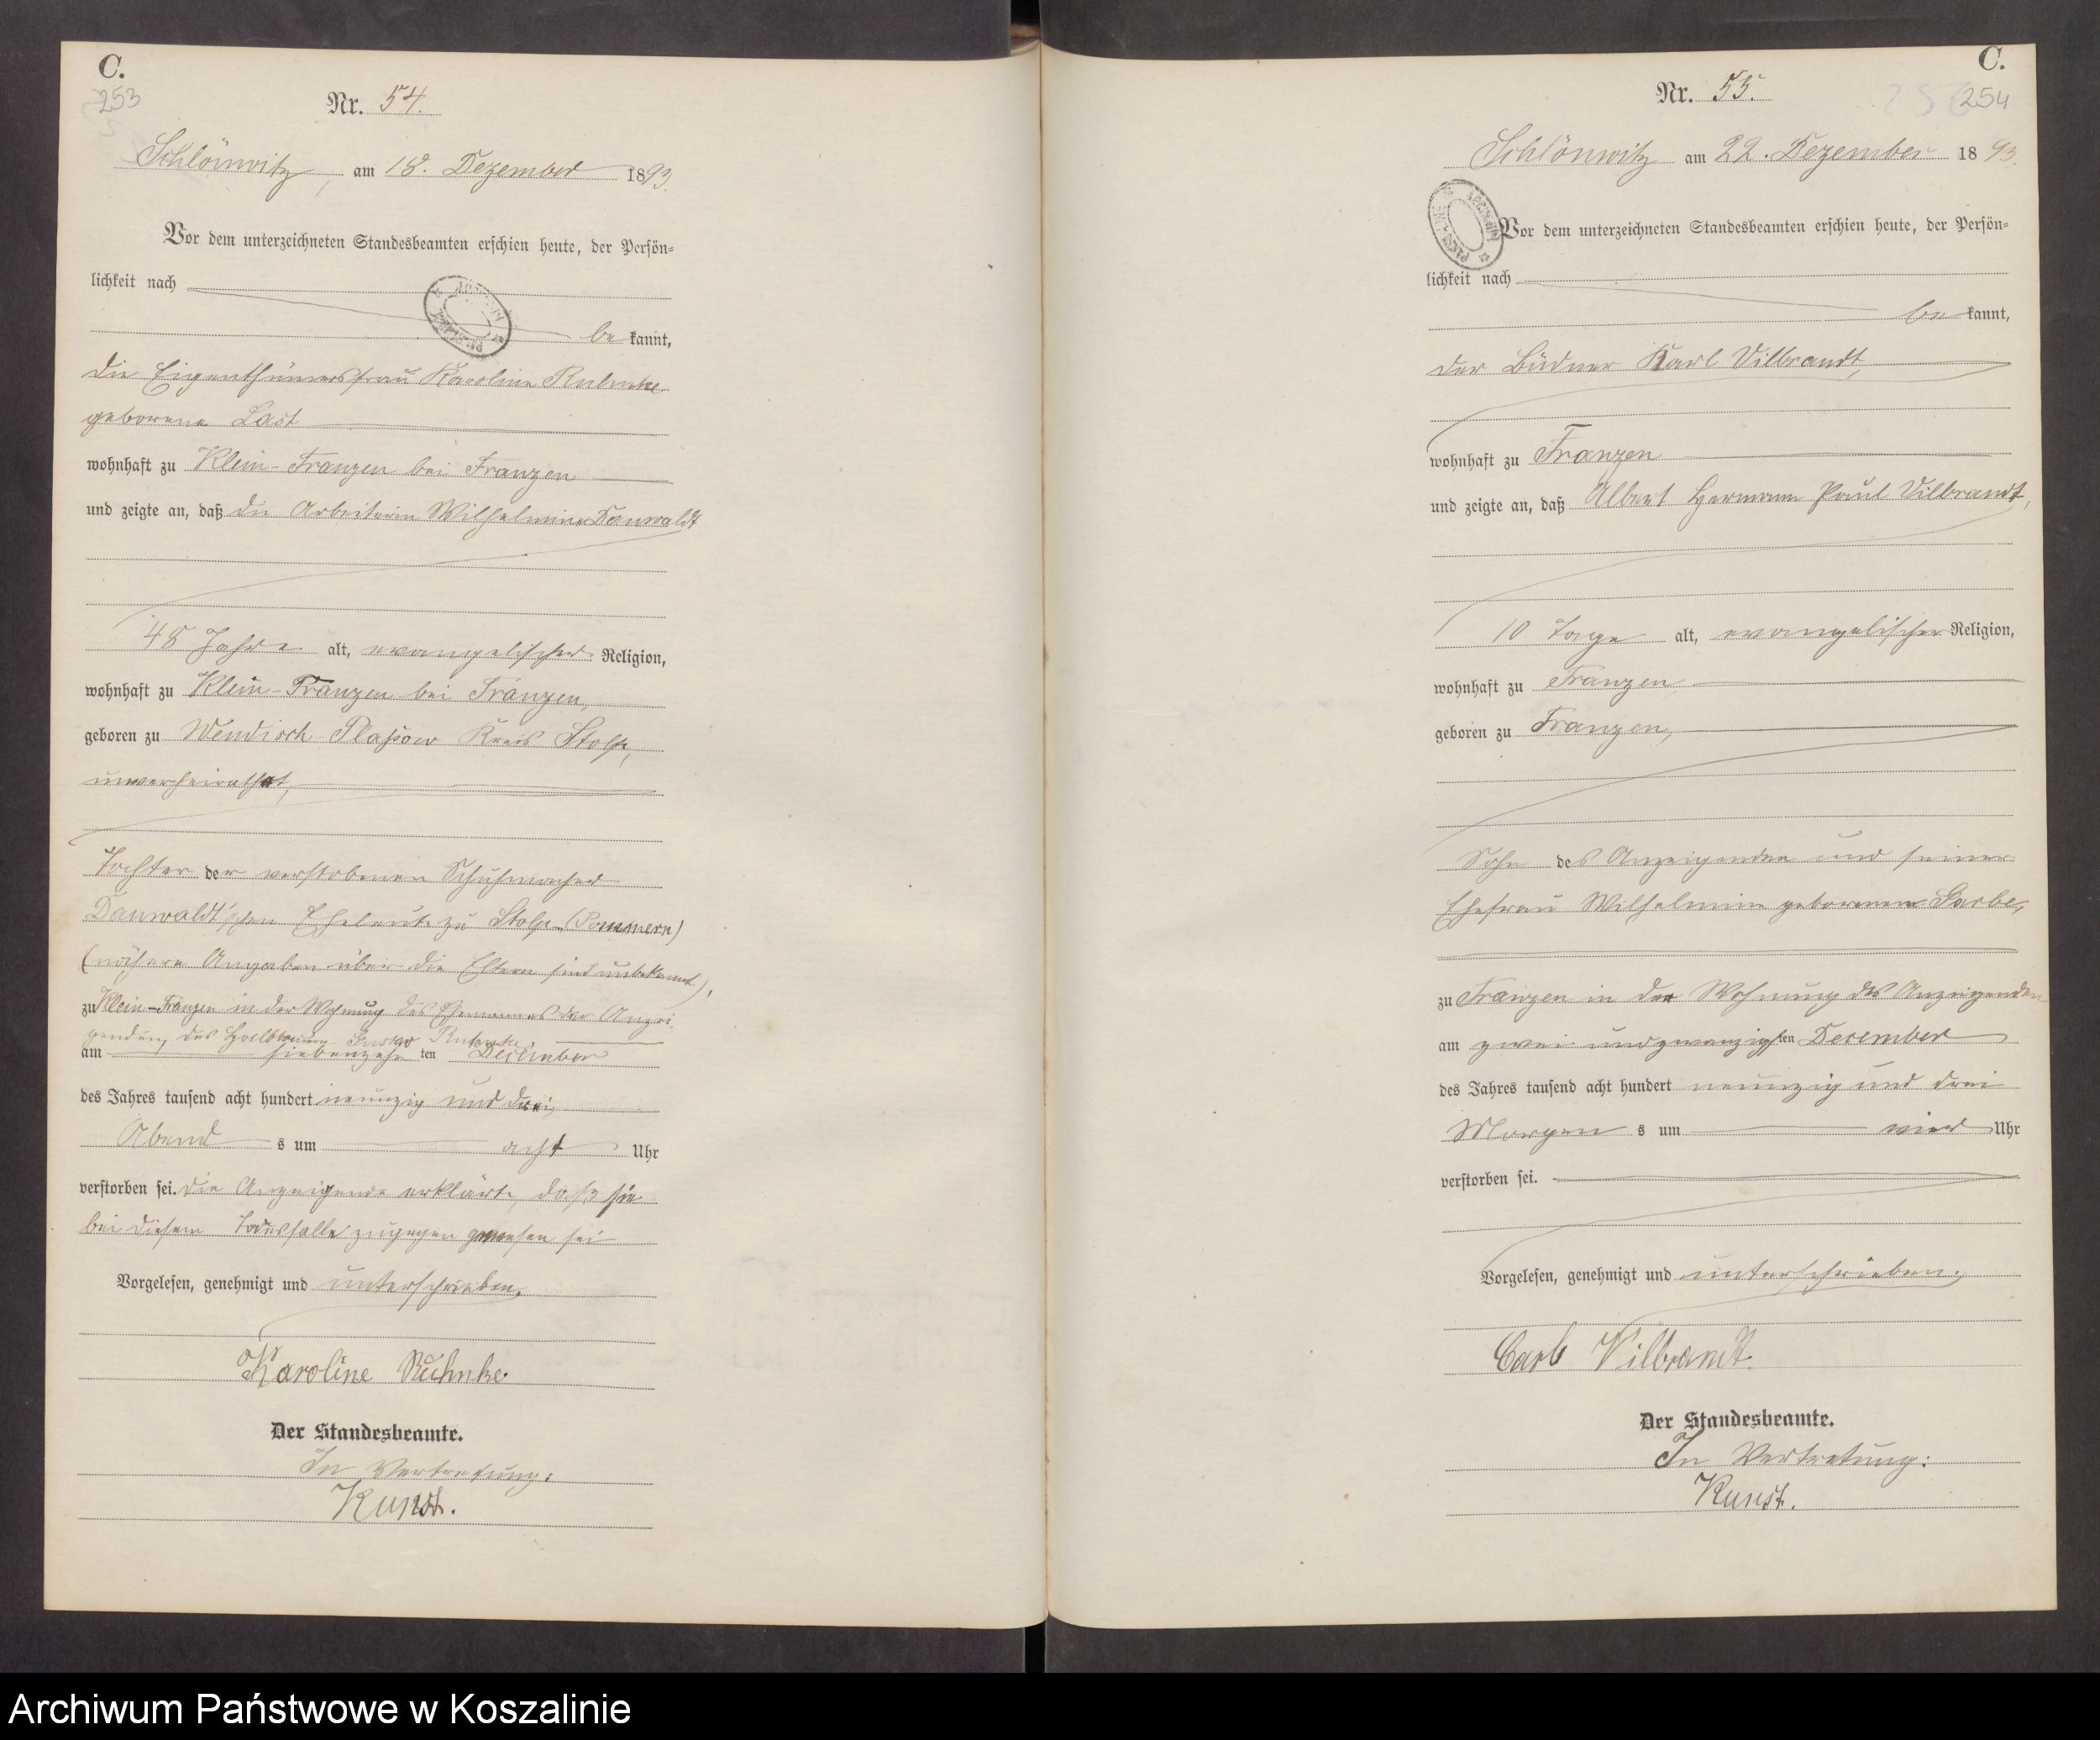 C.
253
Nr. 54.
Schlönwitz, am 18. Dezember 1893.
Vor dem unterzeichneten Standesbeamten erschien heute, der Persön-
lichkeit nach
be kannt,
die Eigenthümersfrau Karoline Ruhnke
geborene Last
wohnhaft zu Klein-Franzen bei Franzen
und zeigte an, daß die Arbeiterin Wilhelmine Dauwaldt
48 Jahre alt, evangelischer Religion,
wohnhaft zu Klein-Franzen bei Franzen,
geboren zu Wendisch Plassow Kreis Stolp,
unverheirathet,
Tochter der verstorbenen Schuhmacher
Dauwaldt'schen Eheleute zu Stolp (Pommern)
(nähere Angaben über die Eltern sind unbekannt),
zu Klein-Franzen in der Wohnung des Ehemannes der Anzei-
genden, des Gustav Ruhnke,
am siebenzehn ten December
des Jahres tausend acht hundert neunzig und drei,
Abend s um acht Uhr
verstorben sei. Die Anzeigende erklärte, daß sie
bei diesem Todesfalle zugegen gewesen sei
Vorgelesen, genehmigt und unterschrieben.
Karoline Ruhnke.
Der Standesbeamte.
In Vertretung:
Kunst.
C.
254
Nr. 55.
Schlönwitz am 22. Dezember 1893.
Vor dem unterzeichneten Standesbeamten erschien heute, der Persön-
lichkeit nach
be kannt,
der Büdner Karl Vilbrandt,
wohnhaft zu Franzen
und zeigte an, daß Albert Hermann Paul Vilbrandt,
10 Tage alt, evangelischer Religion,
wohnhaft zu Franzen
geboren zu Franzen,
Sohn des Anzeigenden und seiner
Ehefrau Wilhelmine geborenen Garbe,
zu Franzen in der Wohnung des Anzeigenden
am zwei und zwanzigsten December
des Jahres tausend acht hundert neunzig und drei
Morgen s um vier Uhr
verstorben sei.
Vorgelesen, genehmigt und unterschrieben.
Carl Vilbrandt.
Der Standesbeamte.
In Vertretung:
Kunst.
Archiwum Państwowe w Koszalinie